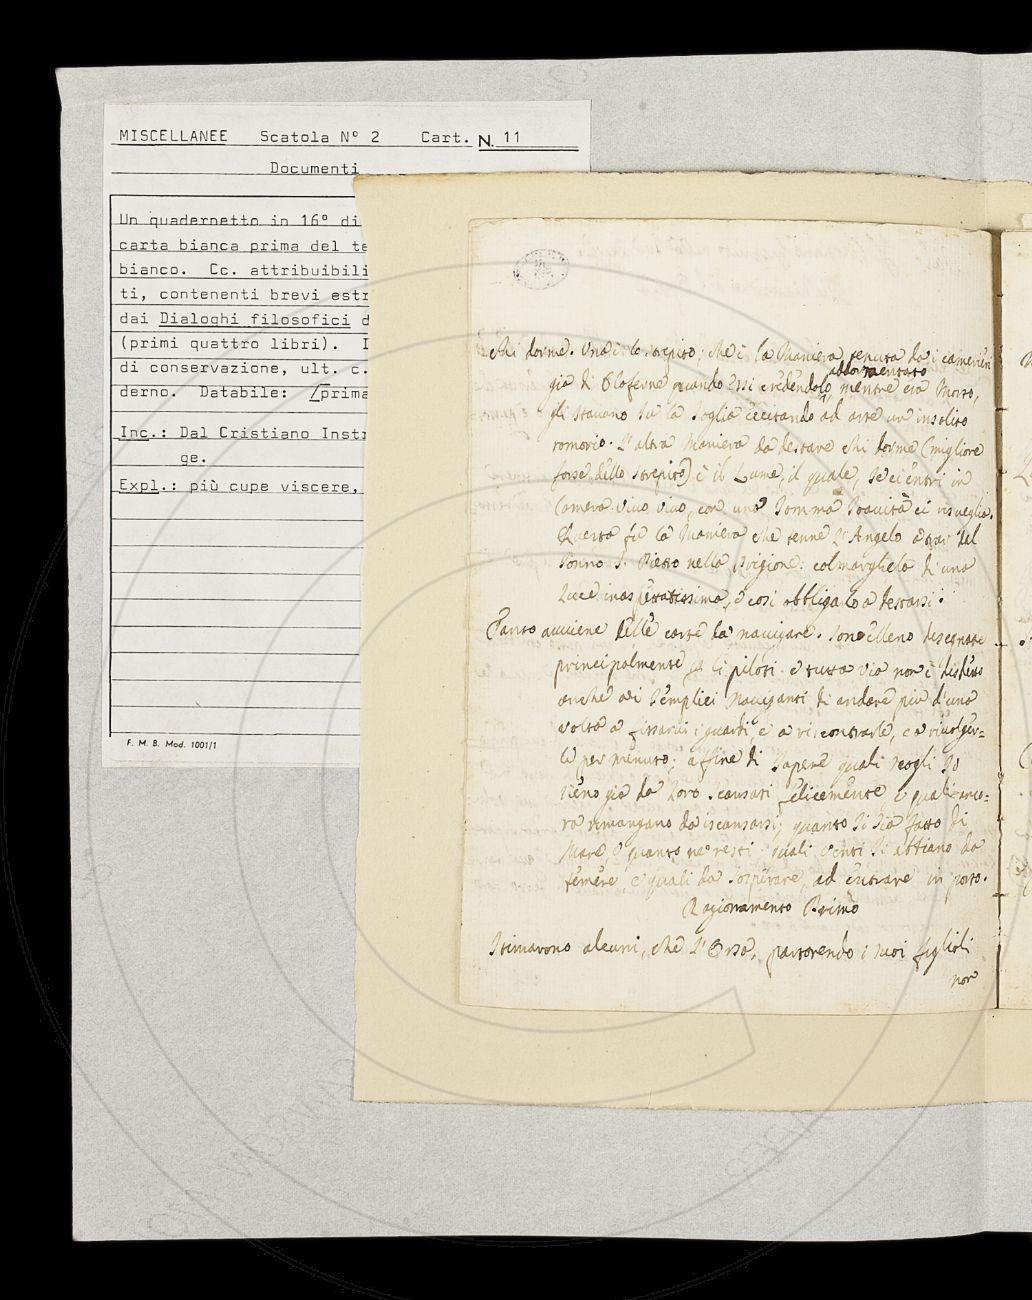 MISCELLANEE Scatola N° 2 Cart. N. 11
Documenti
Un quadernetto in 16° di
carta bianca prima del te
bianco. Cc. attribuibili
ti, contenenti brevi estr
dai Dialoghi filosofici d
(primi quattro libri). I
di conservazione, ult. c.
derno. Databile: /prima
Inc.: Dal Cristiano Inst
ge.
Expl.: più cupe viscere,
F. M. B. Mod. 1001/1
chi dorme. Una è lo strepito; che è la Maniera tenuta da i camerieri
addormentato
già di Oloferne quando Essi credendolo, mentre era Morto,
gli stavano su la soglia eccitando ad arte un insolito
romorio. L'altra Maniera da destare chi dorme (migliore
forse dello strepito) è il Lume, il quale, se ci entri in
Camera vivo vivo, con una somma soavità ci risveglia.
Questa fu la Maniera che tenne l'Angelo a trar del
sonno S. Pietro nella Prigione: colmargliela di una
Luce inaspettatissima, e così obbligarlo a destarsi.
Tanto avviene delle carte da navigare. Sono elleno disegnate
principalmente pe li piloti: e tutta via non è disdetto
anche ai semplici Naviganti di andare più d'una
volta a fissarvi i guardi, e a riscontrarle, e a rivolger=
le per minuto; affine di sapere quali scogli si
sieno già da Loro scansati felicemente e quali anco=
ra rimangano da iscansarsi; quanto si sia fatto di
Mare, e quanto ne resti: quali venti si abbiano da
temere e quali da sospirare, ad entrare in porto.
Ragionamento Primo
Stimarono alcuni, che l'Orsa, partorendo i suoi figlioli
non